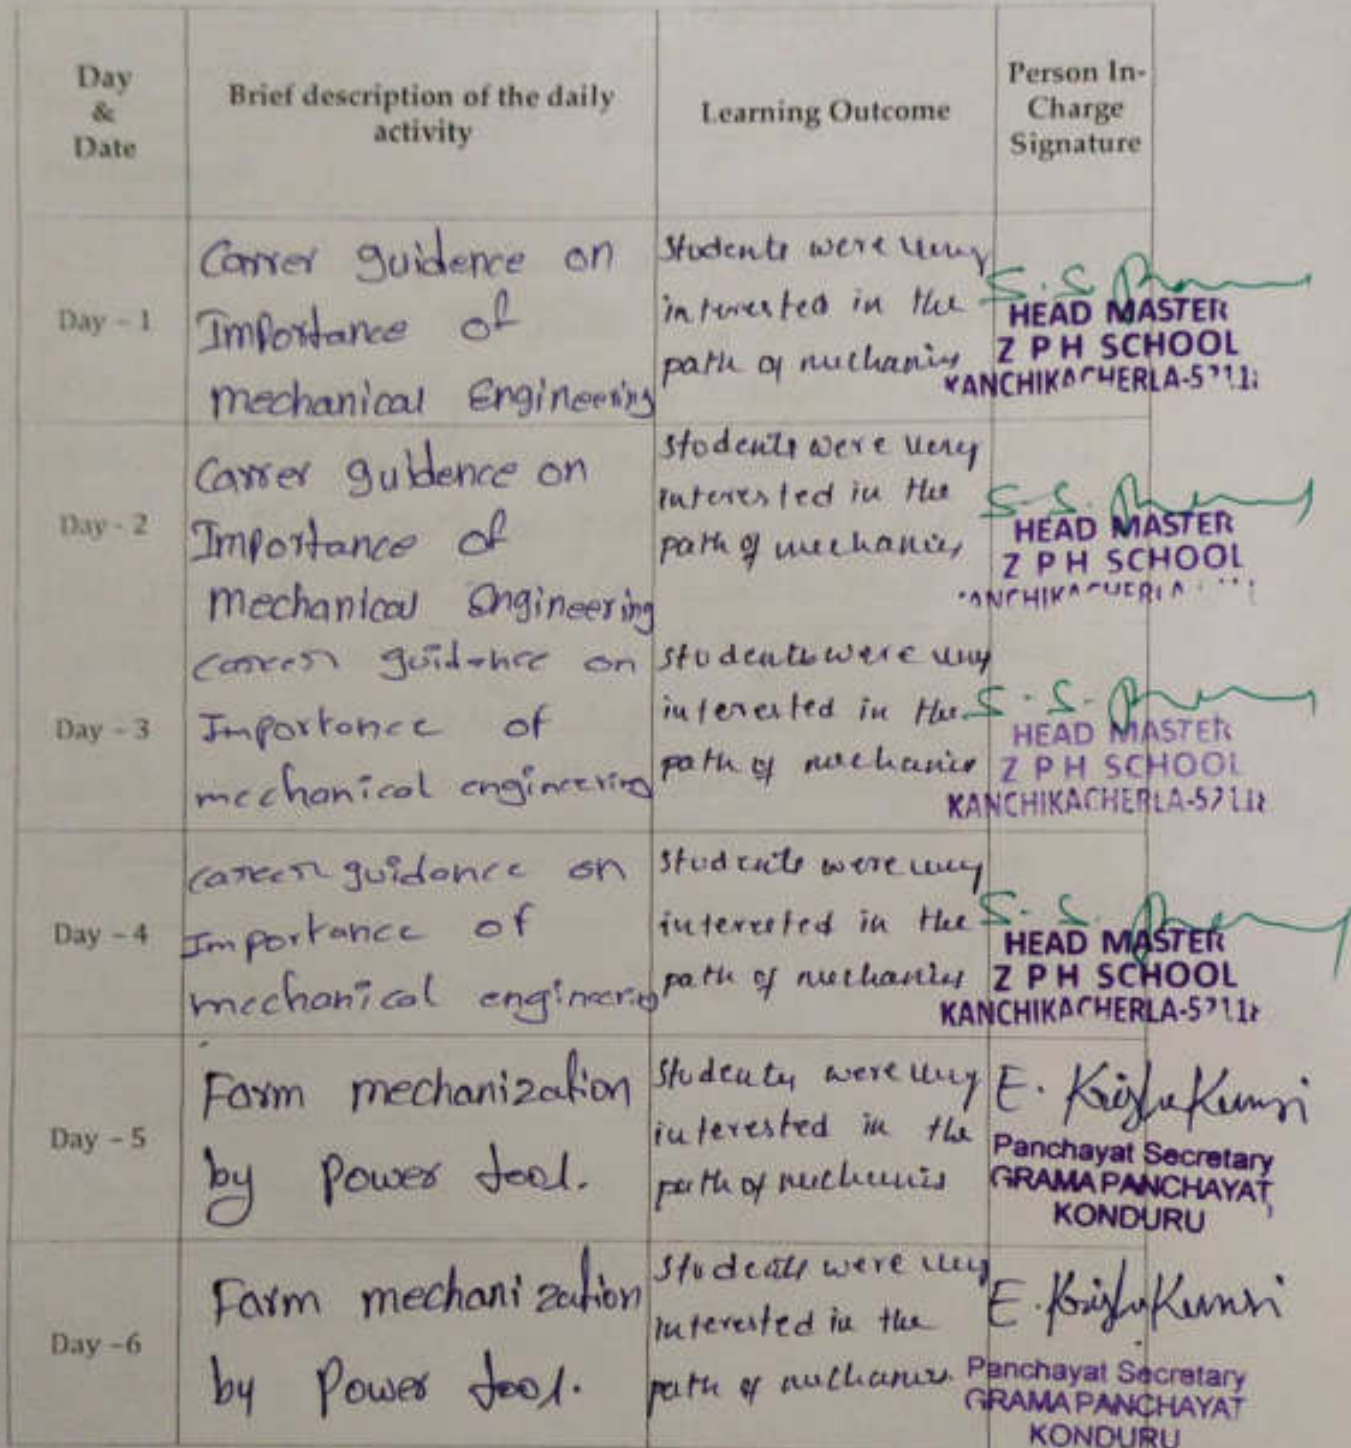 Day
&
Date
Brief description of the daily
activity
Learning Outcome
Person In-
Charge
Signature
Day - 1
Carrer guidence on
Importance of
mechanical Engineering
Students were very
interested in the
path of mechanics
HEAD MASTER
Z P H SCHOOL
KANCHIKACHERLA-5211
Day - 2
Carrer guidence on
Importance of
mechanical Engineering
Students were very
interested in the
path of mechanics
HEAD MASTER
Z P H SCHOOL
KANCHIKACHERLA
Day - 3
career guidance on
Importance of
mechanical engineering
Students were very
interested in the
path of mechanics
HEAD MASTER
Z P H SCHOOL
KANCHIKACHERLA-5211
Day - 4
career guidance on
Importance of
mechanical engineering
Students were very
interested in the
path of mechanics
HEAD MASTER
Z P H SCHOOL
KANCHIKACHERLA-5211
Day - 5
Farm mechanization
by Power tool.
Students were very
interested in the
path of mechanics
E.
Panchayat Secretary
GRAMA PANCHAYAT
KONDURU
Day -6
Farm mechanization
by Power tool.
Students were very
interested in the
path of mechanics
E.
Panchayat Secretary
GRAMA PANCHAYAT
KONDURU